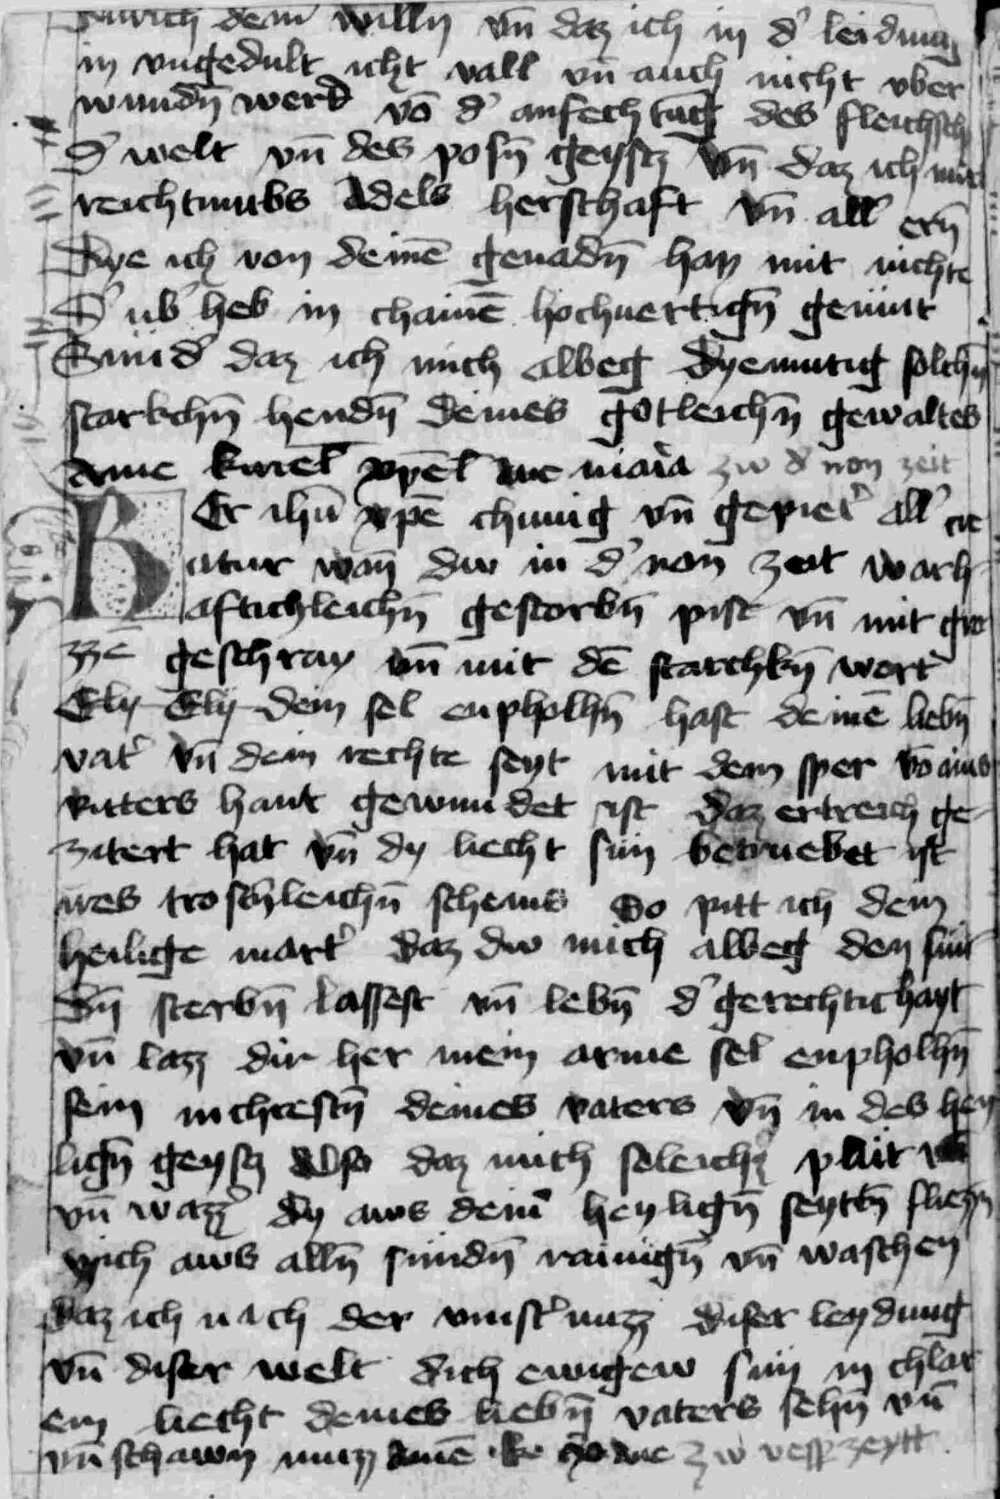 durich dein̄ willn̄ vn̄ daz ich in d' leidung
in vngedult icht vall vn̄ auch nicht vber
wundn̄ werd vō d' anfechtūg des fleichsch
d' welt vn̄ des posn̄ geystz vn̄ daz ich mit
reichtumbs Adels herschaft vn̄ all' ern̄
Dye ich von deinē genadn̄ han mit nichte
D' ub' heb in chainē hochuertign̄ gemut
Sund' daz ich mich albeg dyemutig solchn̄
starkchn̄ hendn̄ deines gotleichn̄ gewaltes
Ame kirieł xp̄eł Aue maīa zw d' non zeit
HEr ihū xp̄e chunig vn̄ gepiet' all' cre
atur wan̄ dw in d' non zeit warh
aftichleichn̄ gestorbn̄ pist vn̄ mit gro
zzē geschray vn̄ mit dē starchkn̄ wort
Ely Ely dein sel enpholhn̄ hast deinē liebn̄
vat' vn̄ dein rechte seyt mit dem sper vō ains
ritters hant gewundet ist daz ertreich ge
zitert hat vn̄ dy liecht sun betruebet ist
ires trostleichn̄ scheins So pitt ich dein
heilige mart' daz dw mich albeg den sun
dn̄ sterbn̄ lassest vn̄ lebn̄ d' gerechtichayt
vn̄ lazz dir her mein arme sel enpholhn̄
sein in chrestn̄ deines vaters vn̄ in des hey
lign̄ geystz Also daz mich soleichz pluit
vn̄ wazz' dy aws dein' heylign̄ seyttn̄ fliezzn̄
mich aws alln̄ sundn̄ rainign̄ vn̄ waschen
daz ich nach der vinst'nuzz diser leydung
vn̄ diser welt dich ewigew sun in chlar
em liecht deines liebn̄ vaters sehn̄ vn̄
vn̄ schawn muzz Amē ke xp̄e Aue zw vesp zeytt